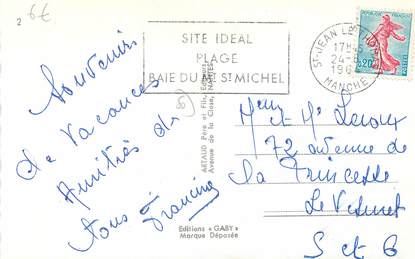 2 6€
SITE IDEAL
PLAGE
BAIE DU MT ST MICHEL
ST-JEAN LE
17H
24-
196
MANCHE
0,20
Souvenirs
de Vacances
Amitiés de
tous Francine
50
ARTAUD Père et Fils, Editeurs
Avenue de la Close, NANTES
Editions « GABY »
Marque Déposée
et Me Leroux
72 avenue de
la Princesse
Le Vésinet
S et O